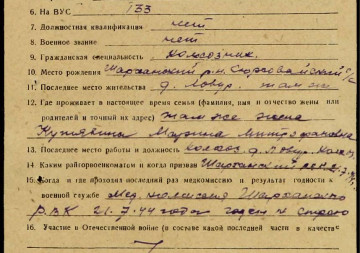 6. На ВУС 133
7. Должностная квалификация нет
8. Военное звание нет
9. Гражданская специальность, колхозник
10. Место рождения Шарканский р-н
11. Последнее место жительства д. там же
12. Где проживает в настоящее время семья (фамилия, имя и отчество жены или
родителей и точный их адрес) там же жена
13. Последнее место работы и должность колхоз д.
14. Каким райгорвоенкоматом и когда призван Шарканский
15. Когда и где проходил последний раз медкомиссию и результат годности к
военной службе Мед. комиссия Шарканского
РВК 21-7-44 года годен к строю
16. Участие в Отечественной войне (в составе какой последней части и в качестве